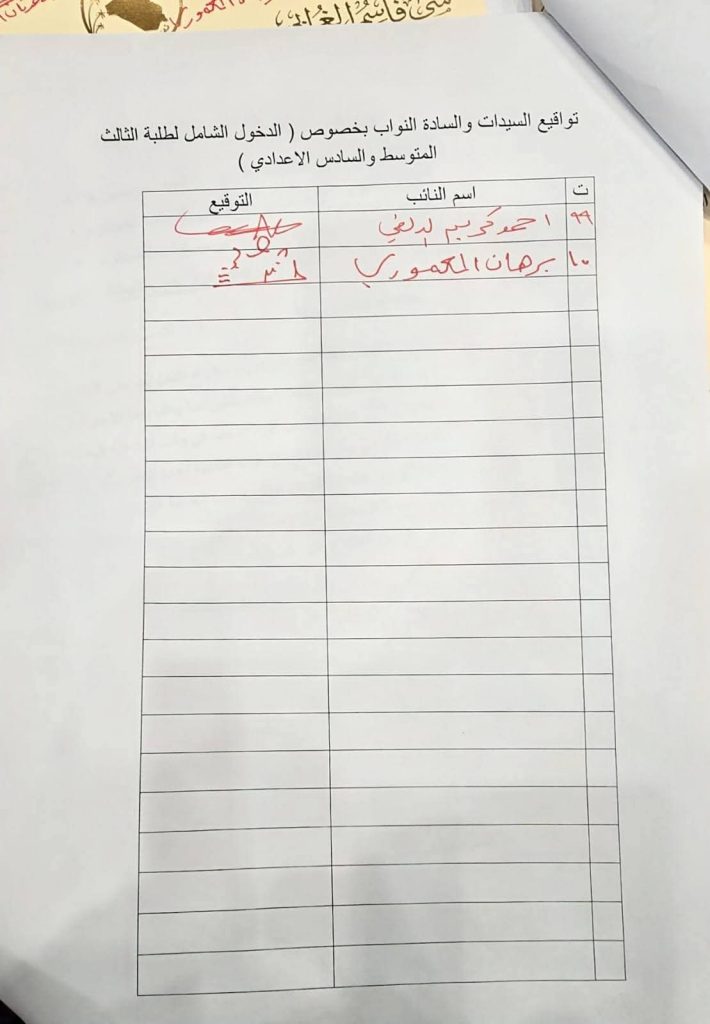 تواقيع السيدات والسادة النواب بخصوص ( الدخول الشامل لطلبة الثالث
المتوسط والسادس الاعدادي )
ت اسم النائب التوقيع
٩٩ احمد كريم الدلفي
١٠٠ برهان المعموري